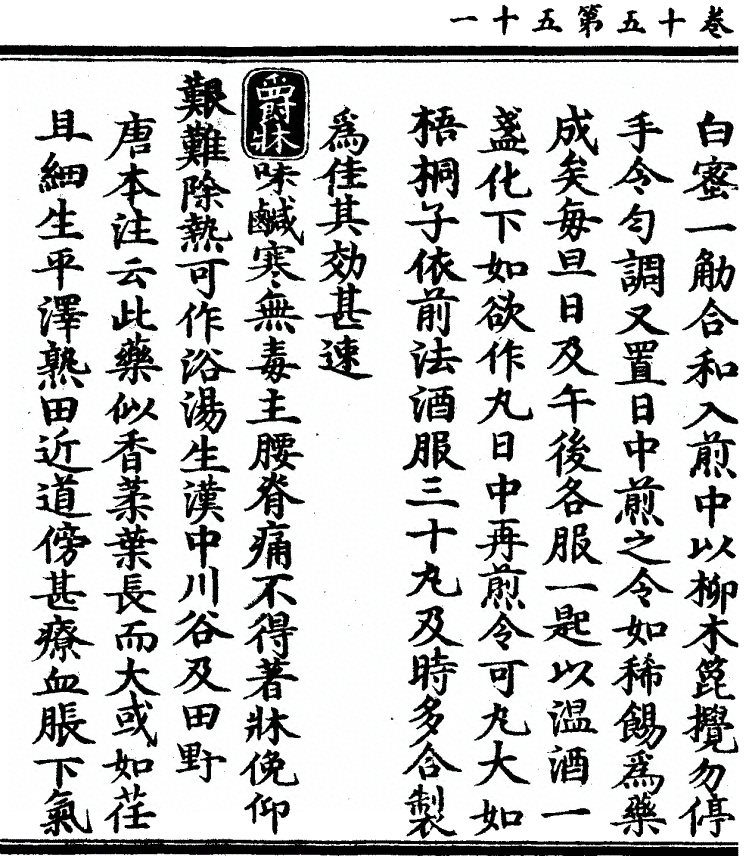 卷十五第五十一
白蜜一觔合和入煎中以柳木篦攪勿停
手令勻調又置日中煎之令如稀餳爲藥
成矣每旦日及午後各服一匙以温酒一
盞化下如欲作丸日中再煎令可丸大如
梧桐子依前法酒服三十丸及時多合製
爲佳其効甚速
爵牀味鹹寒無毒主腰脊痛不得著牀俛仰
艱難除熱可作浴湯生漢中川谷及田野
唐本注云此藥似香葇葉長而大或如荏
且細生平澤熟田近道傍甚療血脹下氣